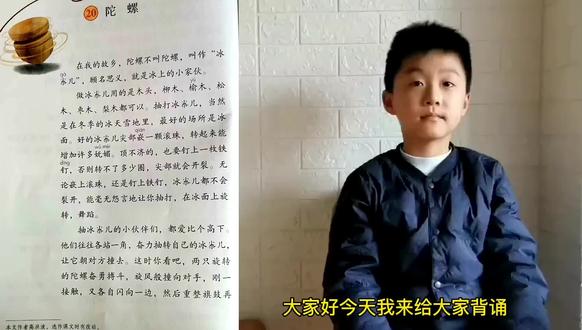 20 陀螺
在我的故乡，陀螺不叫陀螺，叫作“冰
gá
尜儿”，顾名思义，就是冰上的小家伙。
yú
做冰尜儿用的是木头，柳木、榆木、松
木、枣木、梨木都可以。抽打冰尜儿，当然
是在冬季的冰天雪地里，最好的场所是冰
qiàn
面。好的冰尜儿尖部嵌一颗滚珠，转起来能
wǔ mèi
增加许多妩媚。顶不济的，也要钉上一枚铁
dīng
钉，否则转不了多少圈，尖部就会开裂。无
论嵌上滚珠，还是钉上铁钉，冰尜儿都不会
开裂，能毫无怨言地让你抽打，在冰面上旋
转，舞蹈。
抽冰尜儿的小伙伴们，都爱比个高下。
他们往往各站一角，奋力抽转自己的冰尜儿，
让它朝对方撞去。这时你看吧，两只旋转
的陀螺奋勇搏斗，旋风般撞向对手，刚一
接触，又各自闪向一边，然后重整旗鼓再
本文作者高洪波，选作课文时有改动。
大家好今天我来给大家背诵